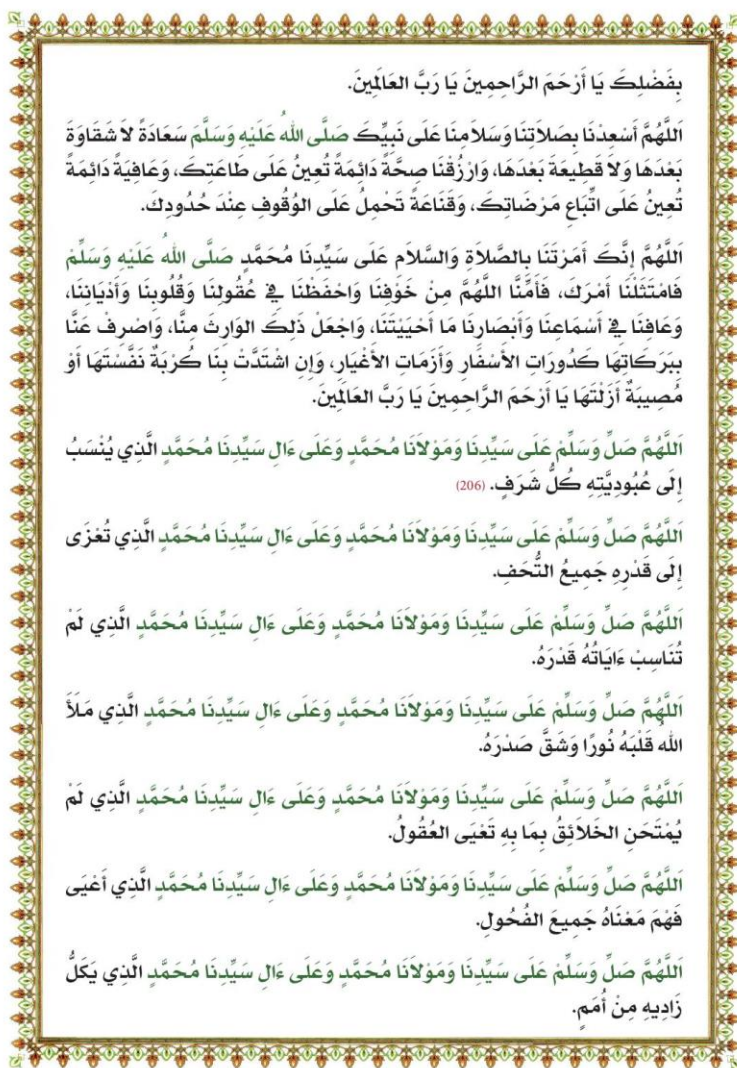 بِفَضْلِكَ يَا أَرْحَمَ الرَّاحِمِينَ يَا رَبَّ العَالَمِينَ.
اَللَّهُمَّ أَسْعِدْنَا بِصَلاَتِنَا وَسَلاَمِنَا عَلَى نَبِيِّكَ صَلَّى اللهُ عَلَيْهِ وَسَلَّمَ سَعَادَةً لاَ شَقَاوَةَ
بَعْدَهَا وَلاَ قَطِيعَةَ بَعْدَهَا، وَارْزُقْنَا صِحَّةً دَائِمَةً تُعِينُ عَلَى طَاعَتِكَ، وَعَافِيَةً دَائِمَةً
تُعِينُ عَلَى اتِّبَاعِ مَرْضَاتِكَ، وَقَنَاعَةً تَحْمِلُ عَلَى الوُقُوفِ عِنْدَ حُدُودِكَ.
اَللَّهُمَّ إِنَّكَ أَمَرْتَنَا بِالصَّلاَةِ وَالسَّلاَمِ عَلَى سَيِّدِنَا مُحَمَّدٍ صَلَّى اللهُ عَلَيْهِ وَسَلَّمْ
فَامْتَثَلْنَا أَمْرَك، فَأَمِّنَّا اللَّهُمَّ مِنْ خَوْفِنَا وَاحْفَظْنَا فِي عُقُولِنَا وَقُلُوبِنَا وَأَدْيَانِنَا،
وَعَافِنَا فِي أَسْمَاعِنَا وَأَبْصَارِنَا مَا أَحْيَيْتَنَا، وَاجْعَلْ ذَلِكَ الوَارِثَ مِنَّا، وَاصْرِفْ عَنَّا
بِبَرَكَاتِهَا كَدُورَاتِ الأَسْفَارِ وَأَزَمَاتِ الأَغْيَارِ، وَإِنِ اشْتَدَّتْ بِنَا كُرْبَةٌ نَفَّسْتَهَا أَوْ
مُصِيبَةٌ أَزَلْتَهَا يَا أَرْحَمَ الرَّاحِمِينَ يَا رَبَّ العَالَمِينَ.
اَللَّهُمَّ صَلِّ وَسَلِّمْ عَلَى سَيِّدِنَا وَمَوْلاَنَا مُحَمَّدٍ وَعَلَى ءَالِ سَيِّدِنَا مُحَمَّدٍ الَّذِي يُنْسَبُ
إِلَى عُبُودِيَّتِهِ كُلُّ شَرَفٍ. (206)
اَللَّهُمَّ صَلِّ وَسَلِّمْ عَلَى سَيِّدِنَا وَمَوْلاَنَا مُحَمَّدٍ وَعَلَى ءَالِ سَيِّدِنَا مُحَمَّدٍ الَّذِي تُعْزَى
إِلَى قَدْرِهِ جَمِيعُ التُّحَفِ.
اَللَّهُمَّ صَلِّ وَسَلِّمْ عَلَى سَيِّدِنَا وَمَوْلاَنَا مُحَمَّدٍ وَعَلَى ءَالِ سَيِّدِنَا مُحَمَّدٍ الَّذِي لَمْ
تُنَاسِبْ ءَايَاتُهُ قَدْرَهُ.
اَللَّهُمَّ صَلِّ وَسَلِّمْ عَلَى سَيِّدِنَا وَمَوْلاَنَا مُحَمَّدٍ وَعَلَى ءَالِ سَيِّدِنَا مُحَمَّدٍ الَّذِي مَلأَ
اللهُ قَلْبَهُ نُورًا وَشَقَّ صَدْرَهُ.
اَللَّهُمَّ صَلِّ وَسَلِّمْ عَلَى سَيِّدِنَا وَمَوْلاَنَا مُحَمَّدٍ وَعَلَى ءَالِ سَيِّدِنَا مُحَمَّدٍ الَّذِي لَمْ
يُمْتَحَنِ الخَلاَئِقُ بِمَا بِهِ تَعْيَى العُقُولُ.
اَللَّهُمَّ صَلِّ وَسَلِّمْ عَلَى سَيِّدِنَا وَمَوْلاَنَا مُحَمَّدٍ وَعَلَى ءَالِ سَيِّدِنَا مُحَمَّدٍ الَّذِي أَعْيَى
فَهْمَ مَعْنَاهُ جَمِيعَ الفُحُولِ.
اَللَّهُمَّ صَلِّ وَسَلِّمْ عَلَى سَيِّدِنَا وَمَوْلاَنَا مُحَمَّدٍ وَعَلَى ءَالِ سَيِّدِنَا مُحَمَّدٍ الَّذِي يَكَلُّ
زَادِيهِ مِنْ أُمَمٍ.